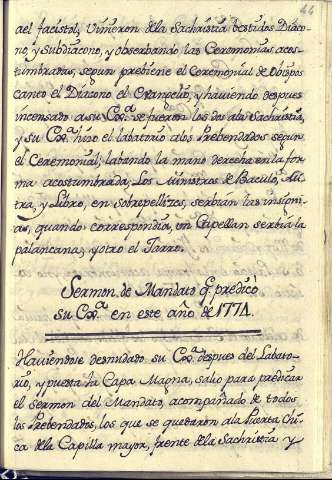 44
del facistol, Vinieron dela Sachristia bestidos Diaco-
no, y Subdiacono, y observando las Ceremonias acos-
tumbradas, segun prebiene el Ceremonial de Obispos
canto el Diacono el Evangelio, y haviendo despues
incensado a su Exª. se fueron los dos ala Sachristia,
y su Exª. hizo el labatorio alos Prebendados segun
el Ceremonial, labando la mano derecha en la for-
ma acostumbrada, Los Ministros de Baculo, Mi-
tra, y Libro, en sobrepellizes, serbian las insigni-
as, quando correspondia, un Capellan serbia la
palancana, y otro el Jarro.
Sermon de Mandato q̃. predicó
su Exª. en este año de 1774.
Haviendose desnudado su Exª. despues del Labato-
rio, y puesta la Capa Magna, salio para predicar
el Sermon del Mandato, acompañado de todos
los Prebendados, los que se quedaron ala Puerta Chi-
ca dela Capilla mayor, frente dela Sachristia y